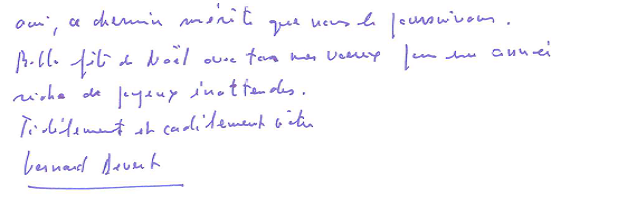 oui, ce chemin mérite que nous le poursuivions.
Belle fête de Noël avec tous mes voeux pour une année
riche de joyeux inattendus.
Fidèlement et cordialement vôtre
Bernard Devert